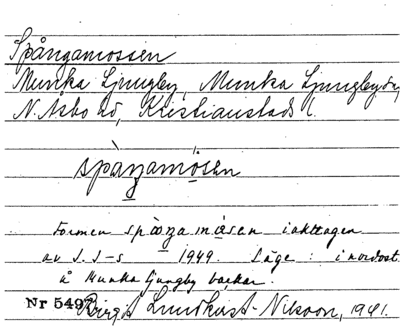 Spångamossen
Munka Ljungby, Munka Ljungby sn,
N. Åsbo hd, Kristianstads l.
spàŋamòsen
Formen spàŋŋa mòsen iakttagen
av S. I-s 1949. Läge: i nordost
å Munka Ljungby backar.
Nr 5497 Birgit Lundkvist-Nilsson, 1941.